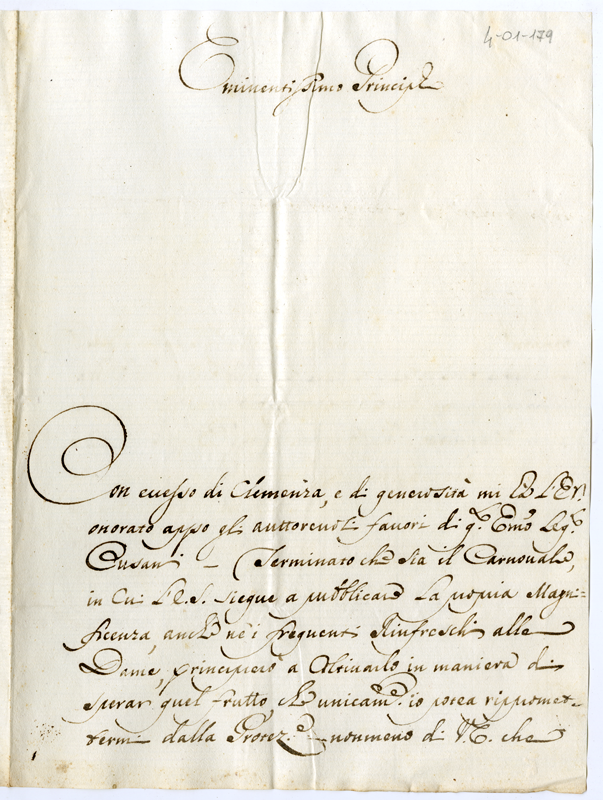 4-01-179
Eminentissimo Principe
Con eccesso di Clemenza, e di generosità mi hà L'E.V.
onorato appo gli auttorevoli favori di q.to Emo Leg.to
Cusani – Terminato che sia il Carnovale,
in Cui L'E.S. siegue a pubblicare la propria Magni=
ficenza, anche ne i frequenti Rinfreschi alle
Dame, principierò a Coltivarlo in maniera di
sperar quel frutto, che unicam.e io potea rippromet=
termi dalla Protez.e nonmeno di V.E. che